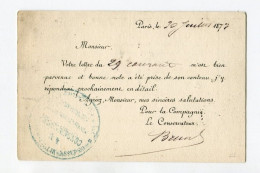 Paris, le 30 1877
Monsieur,
Votre lettre du 29 courant m'est bien
parvenue et bonne note a été prise de son contenu. J'y
répondrai prochainement en détail.
Agréez, Monsieur, mes sincères salutations
Pour la Compagnie
Le Conservateur